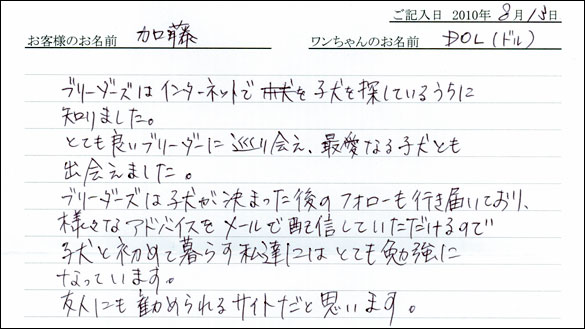 ご記入日 2010年 8月13日
お客様のお名前 加藤 ワンちゃんのお名前 DOL(ドル)
ブリーダーズはインターネットで を子犬を探しているうちに
知りました。
とても良いブリーダーに巡り会え、最愛なる子犬とも
出会えました。
ブリーダーズは子犬が決まった後のフォローも行き届いており、
様々なアドバイスをメールで配信していただけるので
子犬と初めて暮らす私達にはとても勉強に
なっています。
友人にも勧められるサイトだと思います。